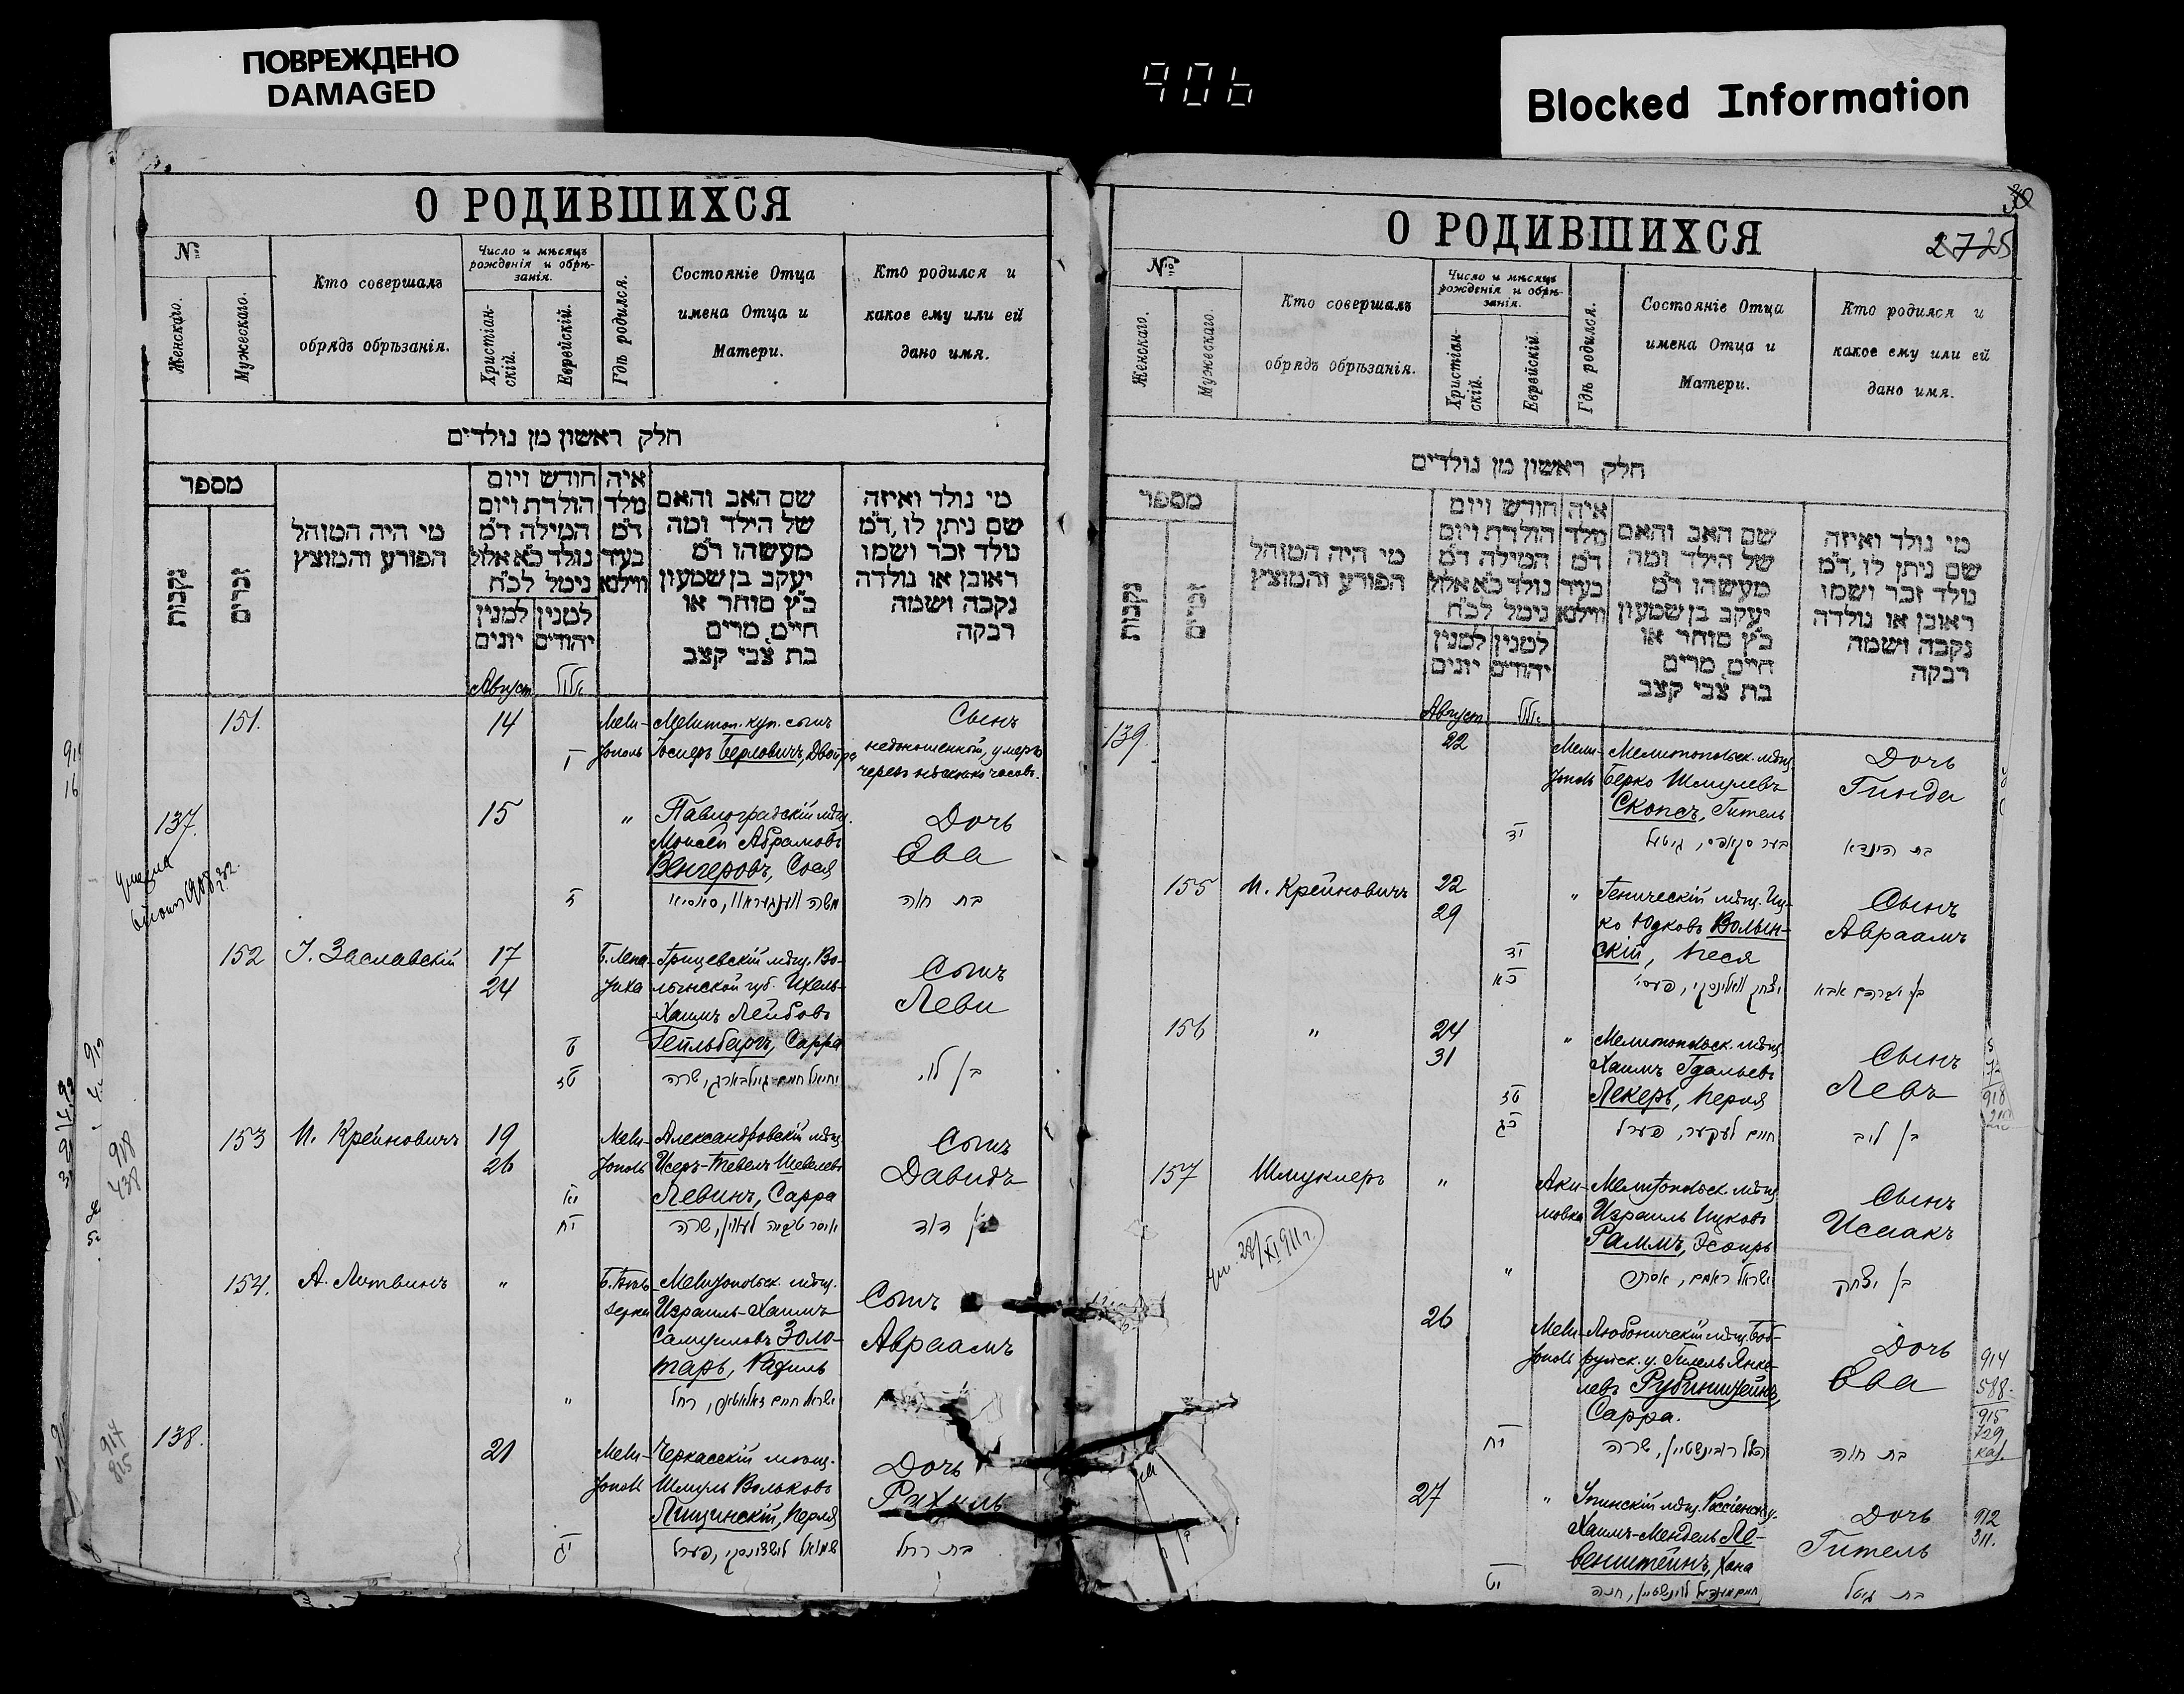 ПОВРЕЖДЕНО
DAMAGED
906
Blocked Information
О РОДИВШИХСЯ
№
Женскаго.
Мужескаго.
Кто совершалъ
обрядъ обрѣзанія.
Число и мѣсяцъ
рожденія и обрѣ-
занія.
Христіан-
скій.
Еврейскій.
Гдѣ родился.
Состояніе Отца
имена Отца и
Матери.
Кто родился и
какое ему или ей
дано имя.
חלק ראשון מן נולדים
מספר
נקבות
זכרים
מי היה המוהל
הפורע והמוצץ
חודש ויום
הולדת ויום
המילה ד״מ
נולד כ״א אלול
נימל לכ״ח
למנין
יונים
למנין
יהודים
איה
נולד
ד״מ
בעיר
ווילנא
שם האב והאם
של הילד ומה
מעשהו ד״מ
יעקב בן שמעון
כ״ץ סוחר או
חיים, מרים
בת צבי קצב
מי נולד ואיזה
שם ניתן לו, ד״מ
נולד זכר ושמו
ראובן או נולדה
נקבה ושמה
רבקה
Август
אלול
151.
14
Мели-
тополь
Мелитоп. куп. сынъ
Іосифъ Берловичъ, Двойра
Сынъ
недоношенный, умеръ
черезъ нѣсколько часовъ.
137.
15
"
Павлоградскій мѣщ.
Моисей Абрамовъ
Венгеровъ, Сося
Дочь
Ева
בת חוה
152
І. Заславскій
17
24
Грицевскій мѣщ. Во-
лынской губ. Ихель-
Хаимъ Лейбовъ
Гейльбергъ, Сарра
Сынъ
Леви
בן לוי
153
И. Крейновичъ
19
26
Мели-
тополь
Александровскій мѣщ.
Исеръ-Тевель Шевелевъ
Левинъ, Сарра
Сынъ
Давидъ
בן דוד
154.
А. Литвинъ
"
Мелитопольск. мѣщ.
Израиль-Хаимъ
Самуиловъ Золо-
тарь, Рахиль
Сынъ
Авраамъ
138.
21
Мели-
тополь
Черкасскій мѣщ.
Шмуль Вольковъ
Лищинскій, Перля
Дочь
Рихиль
בת רחל
О РОДИВШИХСЯ
30
2725
№
Женскаго.
Мужескаго.
Кто совершалъ
обрядъ обрѣзанія.
Число и мѣсяцъ
рожденія и обрѣ-
занія.
Христіан-
скій.
Еврейскій.
Гдѣ родился.
Состояніе Отца
имена Отца и
Матери.
Кто родился и
какое ему или ей
дано имя.
חלק ראשון מן נולדים
מספר
נקבות
זכרים
מי היה המוהל
הפורע והמוצץ
חודש ויום
הולדת ויום
המילה ד״מ
נולד כ״א אלול
נימל לכ״ח
למנין
יונים
למנין
יהודים
איה
נולד
ד״מ
בעיר
ווילנא
שם האב והאם
של הילד ומה
מעשהו ד״מ
יעקב בן שמעון
כ״ץ סוחר או
חיים, מרים
בת צבי קצב
מי נולד ואיזה
שם ניתן לו, ד״מ
נולד זכר ושמו
ראובן או נולדה
נקבה ושמה
רבקה
Август
אלול
139.
22
Мели-
тополь
Мелитопольск. мѣщ.
Берко Шмулевъ
Скопсъ, Гитель
Дочь
Гинда
בת הינדא
155
И. Крейновичъ
22
29
"
Геническій мѣщ. Иц-
ко Юдковъ Волын-
скій, Песя
Сынъ
Авраамъ
בן אברהם אבא
156
"
24
31
"
Мелитопольск. мѣщ.
Хаимъ Гдальевъ
Лекеръ, Перля
Сынъ
Левъ
בן ליב
157
Шмуклеръ
"
Аки-
мовка
Мелитопольск. мѣщ.
Израиль Ицковъ
Раммъ, Эсфирь
Сынъ
Исаакъ
בן יצחק
ум. 28/XI 911 г.
26
Мели-
тополь
Любоничскій мѣщ. Боб-
руйск. у. Гилель Янке-
левъ Рубинштейнъ,
Сарра.
Дочь
Ева
הלל רובינשטיין, שרה
בת חוה
914
588.
915
729
27
"
Хаимъ-Мендель Ле-
венштейнъ, Хана
Дочь
Гитель
בת גיטל
912
311.